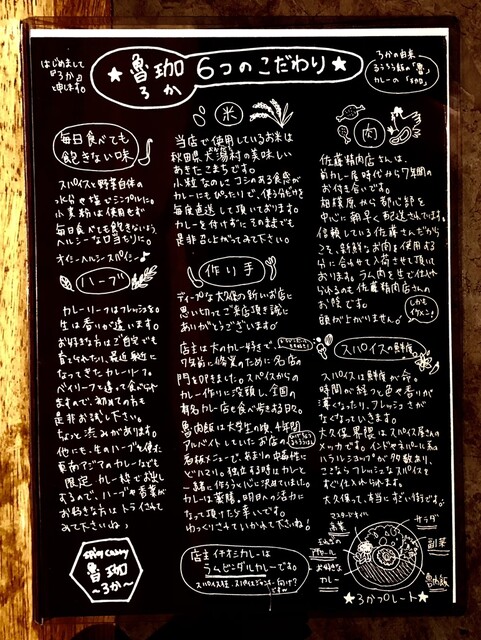 はじめまして
『ろか』
と申します。
★魯珈 6つのこだわり★
ろか
ろかの由来
るうろう飯の「魯」
カレーの「珈」
毎日食べても
飽きない味
スパイスと野菜自体の
水分や塩でシンプルに。
小麦粉は使用せず
毎日食べても飽きないよう、
ヘルシーな口当たりに。
オイシーヘルシースパイシー♪
ハーブ
カレーリーフはフレッシュを。
生は香りが違います。
お好きな方はご自宅でも
育てられたり、最近身近に
なってきたカレーリーフ。
ベイリーフと違って食べられ
ますので、初めての方も
是非お試し下さい。
ちょっと渋みがあります。
他にも、生のハーブを使った
東南アジアのカレーなども
限定カレー枠でお出し
するので、ハーブや香菜が
お好きな方はトライされて
みて下さいね♪
SPICY CURRY
魯珈
～ろか～
米
当店で使用しているお米は
秋田県大潟村の美味しい
あきたこまち です。
小粒なのにコシのある食感が
カレーにもぴったりで、使う分だけを
毎度直送して頂いております。
カレーを付けずにそのままでも
是非召し上がってみて下さい。
作り手
ディープな大久保の新しいお店に
思い切ってご来店頂き誠に
ありがとうございます!
店主は大のカレー好きで、
7年前に修業のために名店の
門を叩きました。スパイスからの
カレー作りに没頭し、全国の
有名カレー店を食べ歩き回る日々。
魯肉飯は大学生の頃、4年間
アルバイトしていたお店の
看板メニューで、あまりの中毒性に
どハマり。独立する時はカレーと
一緒に作ろうと心に決めていました。
カレーは薬膳。明日への活力に
なって頂けたら幸いです。
ゆっくりされていかれて下さいね!
店主イチオシカレーは
ラムビンダルカレーです。
スパイス狂、スパイスジャンキー向け?
です
肉
佐藤精肉店さんは、
前カレー屋時代から7年間の
お付き合いです。
相模原から都心部を
中心に朝早く配送されています。
信頼している佐藤さんだから
こそ、新鮮なお肉を使用する
分に合わせて入荷させて頂いて
おります。ラム肉も生で仕入れ
られるのは佐藤精肉店さんの
お陰です。
頭が上がりません!
しかも
イケメン!
スパイスの鮮度
スパイスは鮮度が命。
時間が経つと色や香りが
薄くなったり、フレッシュさが
なくなっていきます。
大久保界隈はスパイス屋さんの
メッカです。インドやネパール系の
ハラルショップが多数あり、
ここならフレッシュなスパイスを
すぐ仕入れられます。
大久保って、本当にすごい街です。
マスタードオイル
高菜
玉ねぎの
アチャール
お好きな
カレー
サラダ
副菜
魯肉飯
★ろかプレート★